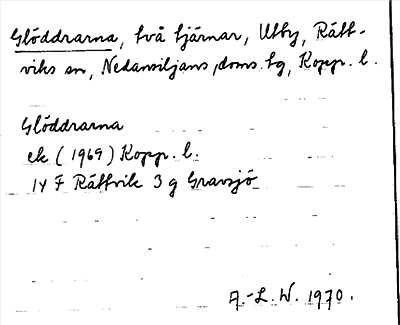 Glöddrarna, två tjärnar, Utby, Rätt-
viks sn, Nedansiljans doms.tg, Kopp. l.
Glöddrarna
ek (1969) Kopp. l.
14 F Rättvik 3 g Gravsjö
A.-L. W. 1970.